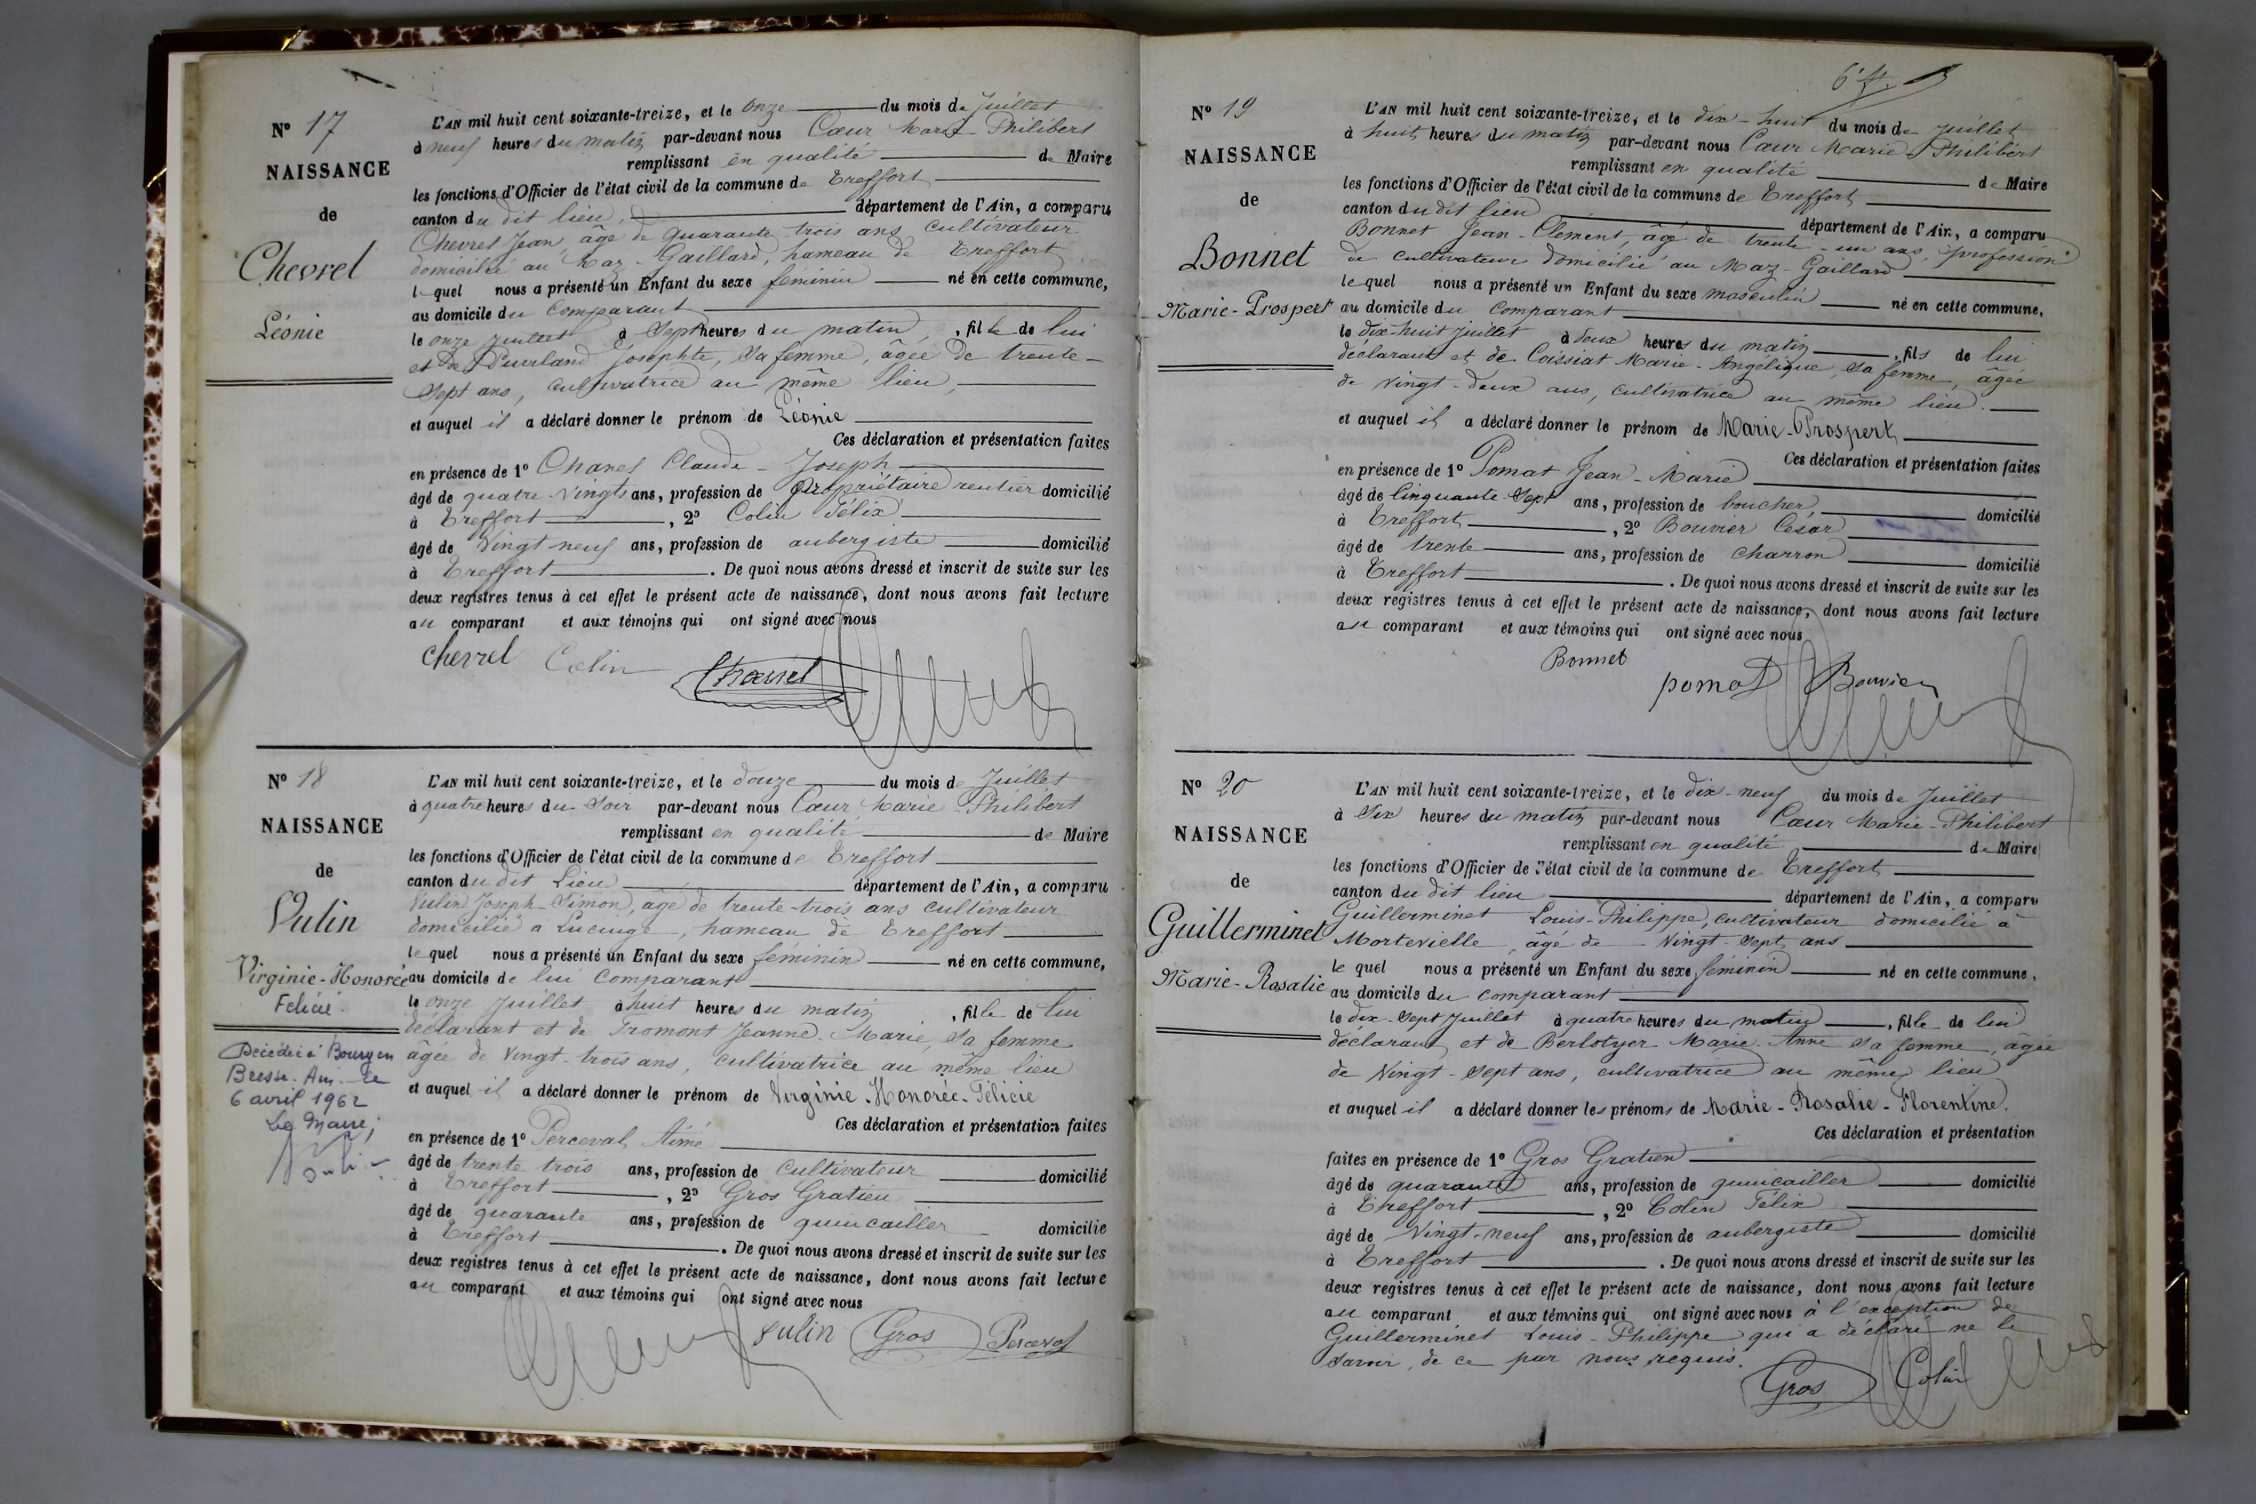 N° 17
NAISSANCE
de
Chevrel
Léonie
L'AN mil huit cent soixante-treize, et le onze du mois de Juillet
à neuf heures du matin par-devant nous Cœur Marie Philibert
remplissant en qualité de Maire
les fonctions d'Officier de l'état civil de la commune de Treffort
canton du dit lieu, département de l'Ain, a comparu
Chevrel Jean, âgé de quarante-trois ans, cultivateur
domicilié au Maz-Gaillard, hameau de Treffort
lequel nous a présenté un Enfant du sexe féminin né en cette commune,
au domicile du comparant
le onze juillet à sept heures du matin, fille de lui
et de Josephte, sa femme, âgée de trente-
sept ans, cultivatrice au même lieu,
et auquel il a déclaré donner le prénom de Léonie
Ces déclaration et présentation faites
en présence de 1° Chanel Claude-Joseph
âgé de quatre-vingts ans, profession de propriétaire rentier domicilié
à Treffort, 2° Colin Félix
âgé de vingt-neuf ans, profession de aubergiste domicilié
à Treffort. De quoi nous avons dressé et inscrit de suite sur les
deux registres tenus à cet effet le présent acte de naissance, dont nous avons fait lecture
au comparant et aux témoins qui ont signé avec nous
Chevrel Colin Chanel
N° 18
NAISSANCE
de
Vulin
Virginie-Honorée
Félicie
Décédée à Bourg en
Bresse. Ain. le
6 avril 1962
Le Maire,
L'AN mil huit cent soixante-treize, et le douze du mois de Juillet
à quatre heures du soir par-devant nous Cœur Marie Philibert
remplissant en qualité de Maire
les fonctions d'Officier de l'état civil de la commune de Treffort
canton du dit Lieu département de l'Ain, a comparu
Vulin Joseph-Simon, âgé de trente-trois ans cultivateur
domicilié à Lucinge, hameau de Treffort
lequel nous a présenté un Enfant du sexe féminin né en cette commune,
au domicile de lui comparant
le onze Juillet à huit heures du matin, fille de lui
déclarant et de Fromont Jeanne-Marie, sa femme
âgée de vingt-trois ans, cultivatrice au même lieu
et auquel il a déclaré donner le prénom de Virginie-Honorée-Félicie
Ces déclaration et présentation faites
en présence de 1° Perceval Aimé
âgé de trente trois ans, profession de cultivateur domicilié
à Treffort, 2° Gros Gratien
âgé de quarante ans, profession de quincailler domicilié
à Treffort. De quoi nous avons dressé et inscrit de suite sur les
deux registres tenus à cet effet le présent acte de naissance, dont nous avons fait lecture
au comparant et aux témoins qui ont signé avec nous
vulin Gros Perceval
N° 19
NAISSANCE
de
Bonnet
Marie-Prospert
L'AN mil huit cent soixante-treize, et le dix-huit du mois de Juillet
à huit heures du matin par-devant nous Cœur Marie-Philibert
remplissant en qualité de Maire
les fonctions d'Officier de l'état civil de la commune de Treffort
canton du dit lieu département de l'Ain, a comparu
Bonnet Jean-Clément, âgé de trente-un ans, profession
de cultivateur domicilié au Maz-Gaillard
lequel nous a présenté un Enfant du sexe masculin né en cette commune,
au domicile du comparant
le dix-huit juillet à deux heures du matin, fils de lui
déclarant et de Coissiat Marie-Angélique, sa femme, âgée
de vingt-deux ans, cultivatrice au même lieu.
et auquel il a déclaré donner le prénom de Marie-Prospert
Ces déclaration et présentation faites
en présence de 1° Pomat Jean-Marie
âgé de Cinquante Sept ans, profession de boucher domicilié
à Treffort, 2° Bouvier César
âgé de trente ans, profession de charron domicilié
à Treffort. De quoi nous avons dressé et inscrit de suite sur les
deux registres tenus à cet effet le présent acte de naissance, dont nous avons fait lecture
au comparant et aux témoins qui ont signé avec nous
Bonnet
pomat Bouvier
N° 20
NAISSANCE
de
Guillerminet
Marie-Rosalie
L'AN mil huit cent soixante-treize, et le dix-neuf du mois de Juillet
à Six heures du matin par-devant nous Cœur Marie-Philibert
remplissant en qualité de Maire
les fonctions d'Officier de l'état civil de la commune de Treffort
canton du dit lieu département de l'Ain, a comparu
Guillerminet Louis-Philippe, cultivateur domicilié à
Mortevielle, âgé de vingt-sept ans
lequel nous a présenté un Enfant du sexe féminin né en cette commune,
au domicile du comparant
le dix-sept Juillet à quatre heures du matin, fille de lui
déclarant et de Berlotyer Marie-Anne sa femme, âgée
de vingt-sept ans, cultivatrice au même lieu
et auquel il a déclaré donner les prénoms de Marie-Rosalie-Florentine.
Ces déclaration et présentation
faites en présence de 1° Gros Gratien
âgé de quarante ans, profession de quincailler domicilié
à Treffort, 2° Colin Félix
âgé de vingt-neuf ans, profession de aubergiste domicilié
à Treffort. De quoi nous avons dressé et inscrit de suite sur les
deux registres tenus à cet effet le présent acte de naissance, dont nous avons fait lecture
au comparant et aux témoins qui ont signé avec nous à l'exception de
Guillerminet Louis-Philippe qui a déclaré ne le
savoir, de ce par nous requis.
Gros Colin